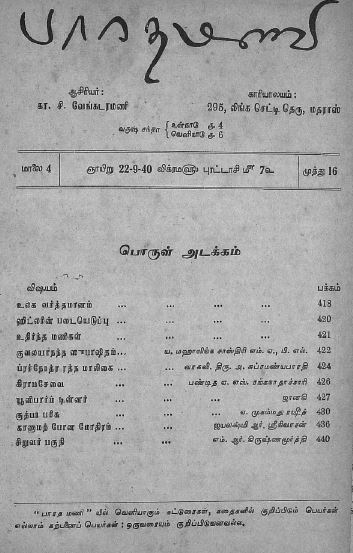 பாரதமணி
ஆசிரியர் :
கா. சி. வேங்கடரமணி
காரியாலயம் :
295, லிங்க செட்டி தெரு, மதராஸ்
வருஷ சந்தா { உள்நாடு ரூ 4
வெளியாடு ரூ 6
மாலை 4 ஞாயிறு 22-9-40 விக்ரமஹு புரட்டாசி மீ 7உ முத்து 16
பொருள் அடக்கம்
விஷயம் பக்கம்
உலக வர்த்தமானம் ... ... ... ... 418
ஹிட்லரின் படையெடுப்பு ... ... ... ... 420
உதிர்ந்த மணிகள் ... ... ... ... 421
குவலயாநந்த ஸுபாஷிதம் ... ய. மஹாலிங்க சாஸ்திரி எம். ஏ., பி. எல். 422
ப்ரச்நோத்ர ரத்ந மாலிகை ... வரகவி. திரு. அ. சுப்ரமண்யபாரதி 424
கிராமசேவை ... ... பண்டித எ. எஸ். ரங்கநாதாச்சாரி 426
யூனிபார்ம் டின்னர் ... ... ... ஜானகி 427
குத்பா பரிசு ... ... ... முகம்மது ரஷீத் 430
காணாமற் போன மோதிரம் ... ... ஜயலக்ஷ்மி ஆர். ஸ்ரீநிவாசன் 436
சிறுவர் பகுதி ... ... எம். ஆர். கிருஷ்ணமூர்த்தி 440
"பாரத மணி" யில் வெளியாகும் கட்டுரைகள், கதைகளில் குறிப்பிடும் பெயர்கள்
எல்லாம் கற்பனைப் பெயர்கள் : ஒருவரையும் குறிப்பிடுவனவல்ல.